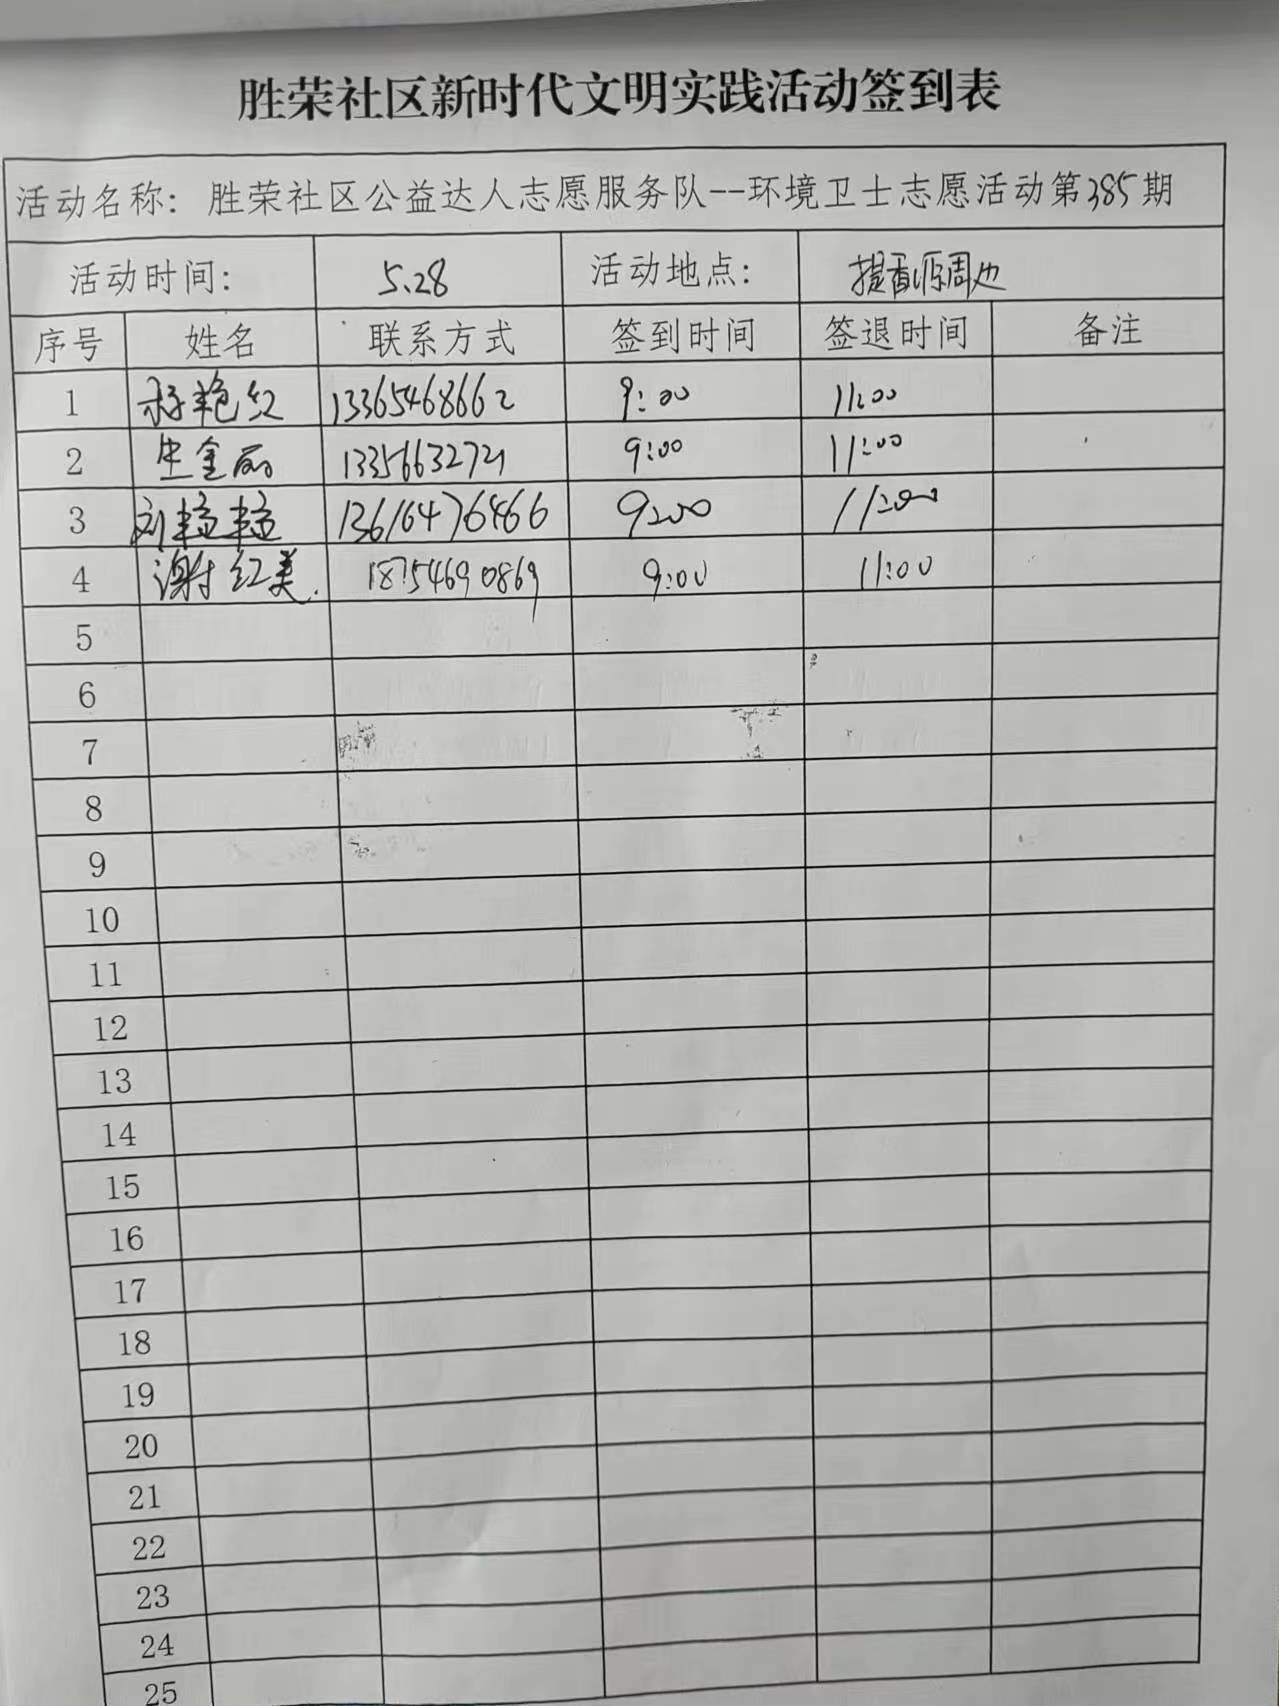 胜荣社区新时代文明实践活动签到表
活动名称：胜荣社区公益达人志愿服务队--环境卫士志愿活动第385期
活动时间： 5.28 活动地点： 提香源周边
序号 姓名 联系方式 签到时间 签退时间 备注
1 艳红 13365468662 9:00 11:00
2 生金丽 13356632721 9:00 11:00
3 刘艳艳 13616476466 9:00 11:00
4 谢红美 18754690869 9:00 11:00
5
6
7
8
9
10
11
12
13
14
15
16
17
18
19
20
21
22
23
24
25